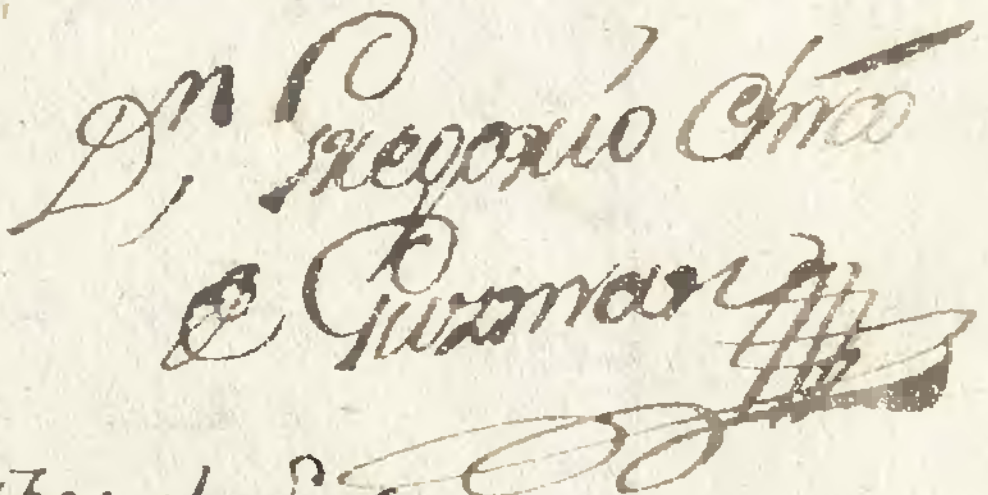 Dn, Gregorio Chro
e Guzman